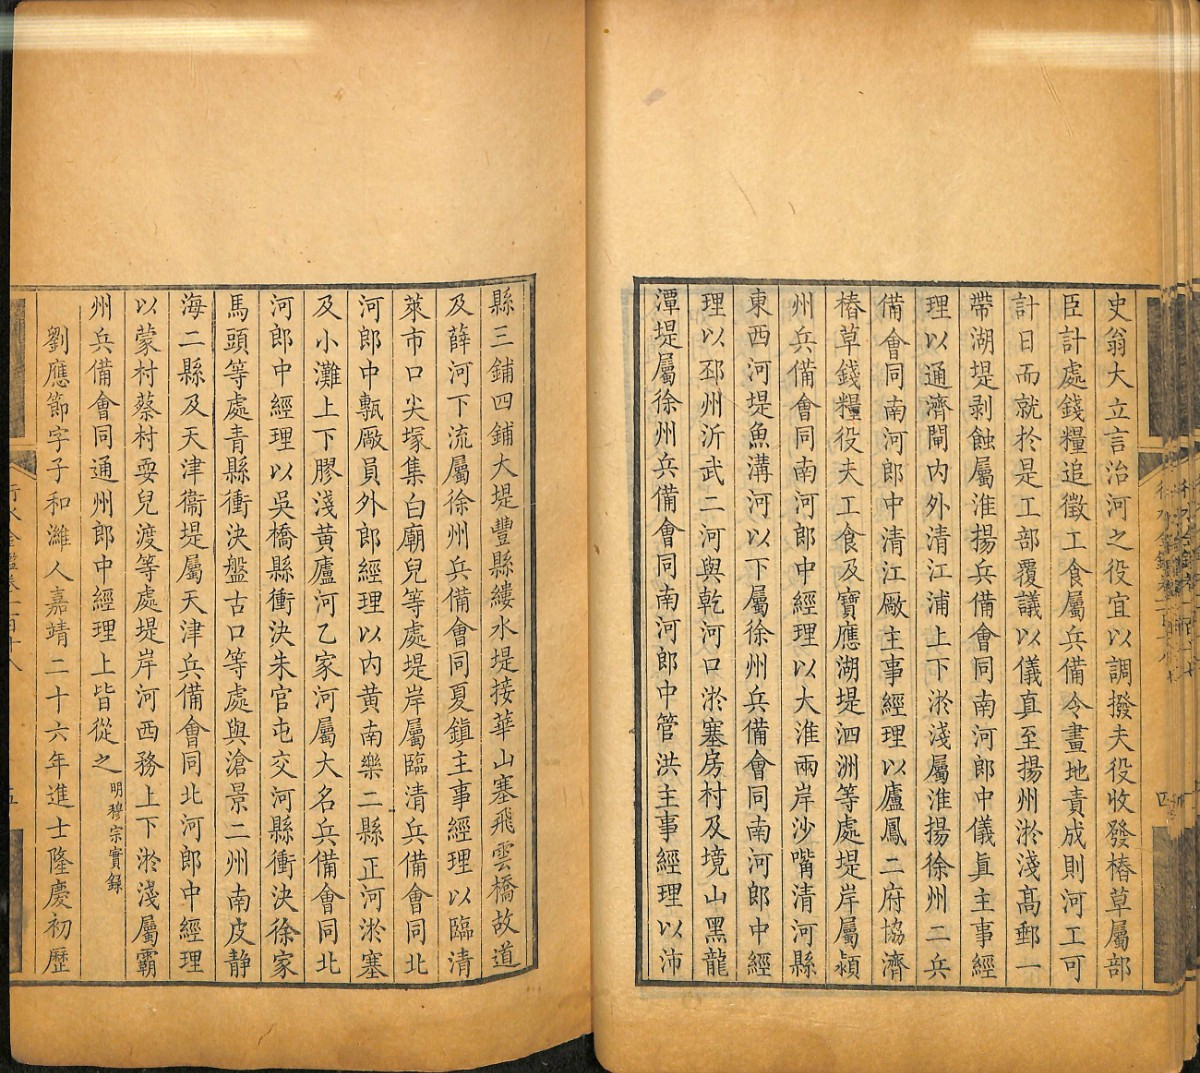 史翁大立言治河之役宜以調撥夫役收發樁草屬部
臣計處錢糧追徵工食屬兵備令畫地責成則河工可
計日而就於是工部覆議以儀真至揚州淤淺高郵一
帶湖堤剥蝕屬淮揚兵備會同南河郎中儀眞主事經
理以通濟閘内外清江浦上下淤淺屬淮揚徐州二兵
備會同南河郎中清江厰主事經理以廬鳳二府協濟
樁草錢糧役夫工食及寶應湖堤泗洲等處堤岸屬潁
州兵備會同南河郎中經理以大淮兩岸沙嘴清河縣
東西河堤魚溝河以下屬徐州兵備會同南河郎中經
理以邳州沂武二河與乾河口淤塞房村及境山黑龍
潭堤屬徐州兵備會同南河郎中管洪主事經理以沛
縣三鋪四鋪大堤豐縣縷水堤接華山塞飛雲橋故道
及薛河下流屬徐州兵備會同夏鎭主事經理以臨清
菜市口尖塚集白廟兒等處堤岸屬臨清兵備會同北
河郎中甎厰員外郎經理以内黄南樂二縣正河淤塞
及小灘上下膠淺黄廬河乙家河屬大名兵備會同北
河郎中經理以吳橋縣衝決朱官屯交河縣衝決徐家
馬頭等處青縣衝決盤古口等處與滄景二州南皮静
海二縣及天津衞堤屬天津兵備會同北河郎中經理
以蒙村蔡村耍兒渡等處堤岸河西務上下淤淺屬霸
州兵備會同通州郎中經理上皆從之明穆宗實録
劉應節字子和濰人嘉靖二十六年進士隆慶初歷